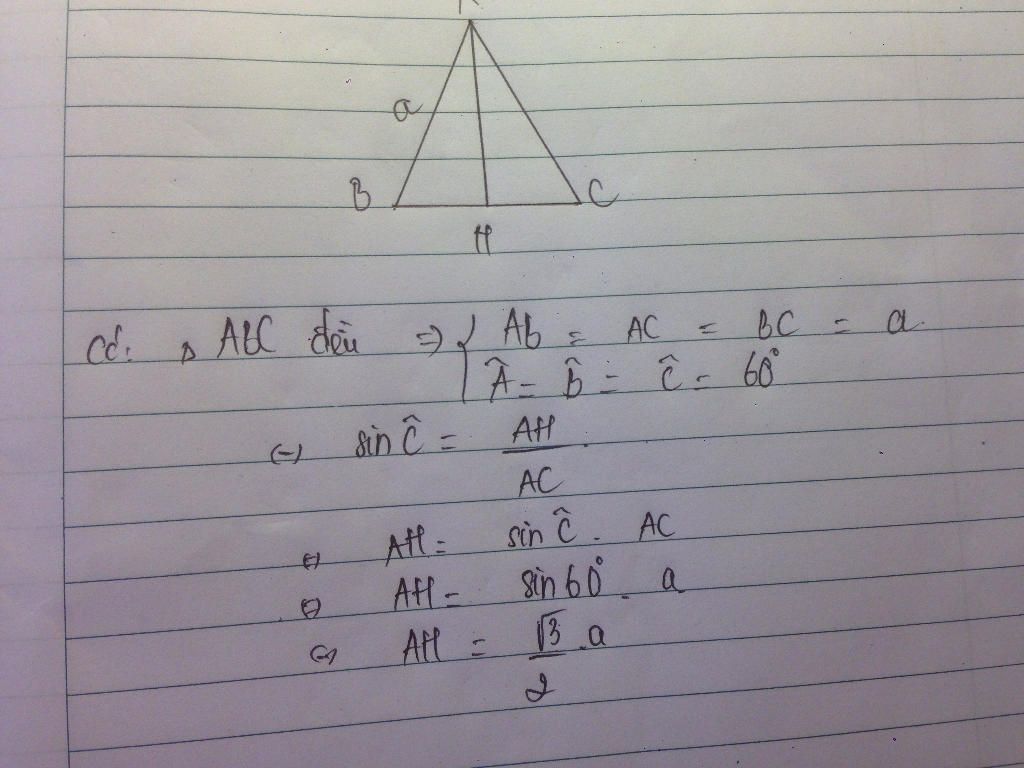 a
B
C
H
Có: Δ ABC đều => { AB = AC = BC = a.
Â = B̂ = Ĉ = 60°
<=> sin Ĉ = AH / AC
<=> AH = sin Ĉ . AC
<=> AH = sin 60° . a
<=> AH = √3 / 2 . a